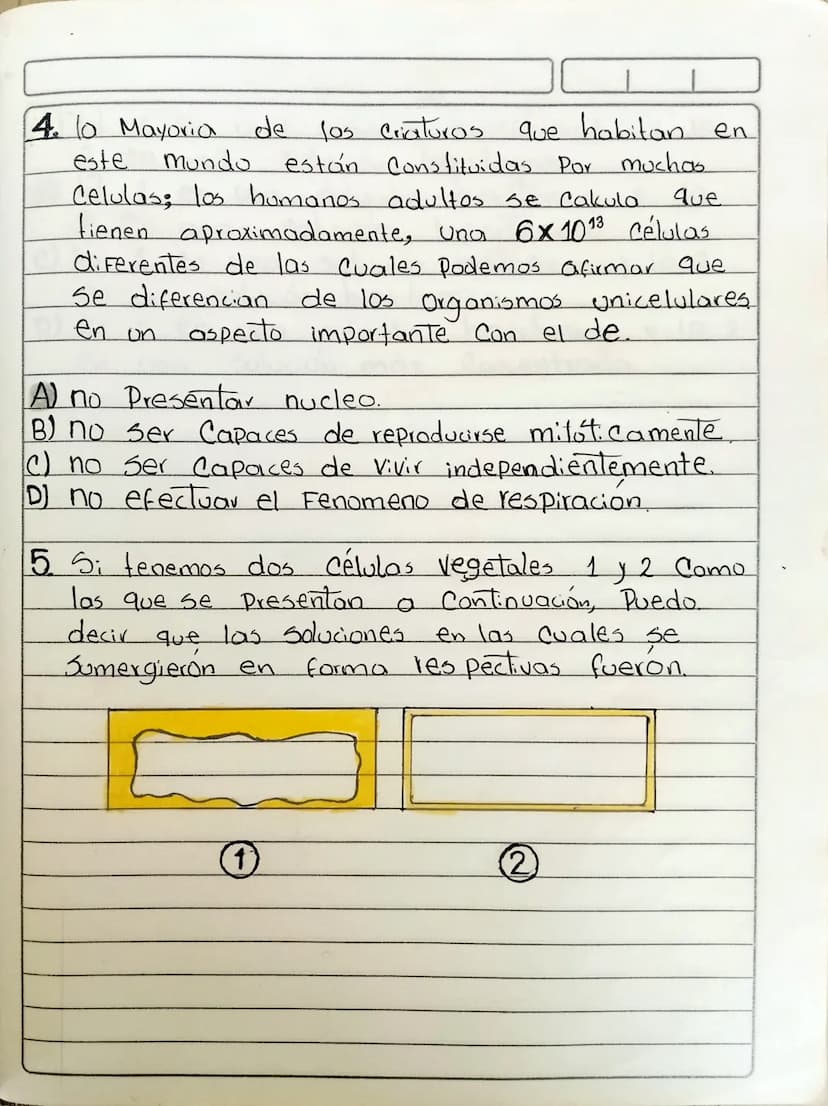 4. la Mayoria de las criaturas que habitan en
este mundo están Constituidas Por muchas
Celulas; los humanos adultos se Calcula que
tienen aproximadamente, una 6x10¹³ Células
diFerentes de las Cuales Podemos afirmar que
Se diferencian de los organismos unicelulares
en un aspecto importante Con el de.
A) no Presentar nucleo.
B) no ser Capaces de reproducirse mitóticamente.
C) no ser Capaces de vivir independientemente.
D) no efectuar el Fenomeno de respiración.
5. Si tenemos dos Células vegetales 1 y 2 Como
las que se Presentan a Continuación, Puedo.
decir que las soluciones en las Cuales se
Sumergierón en forma respectivas fuerón.
1 2